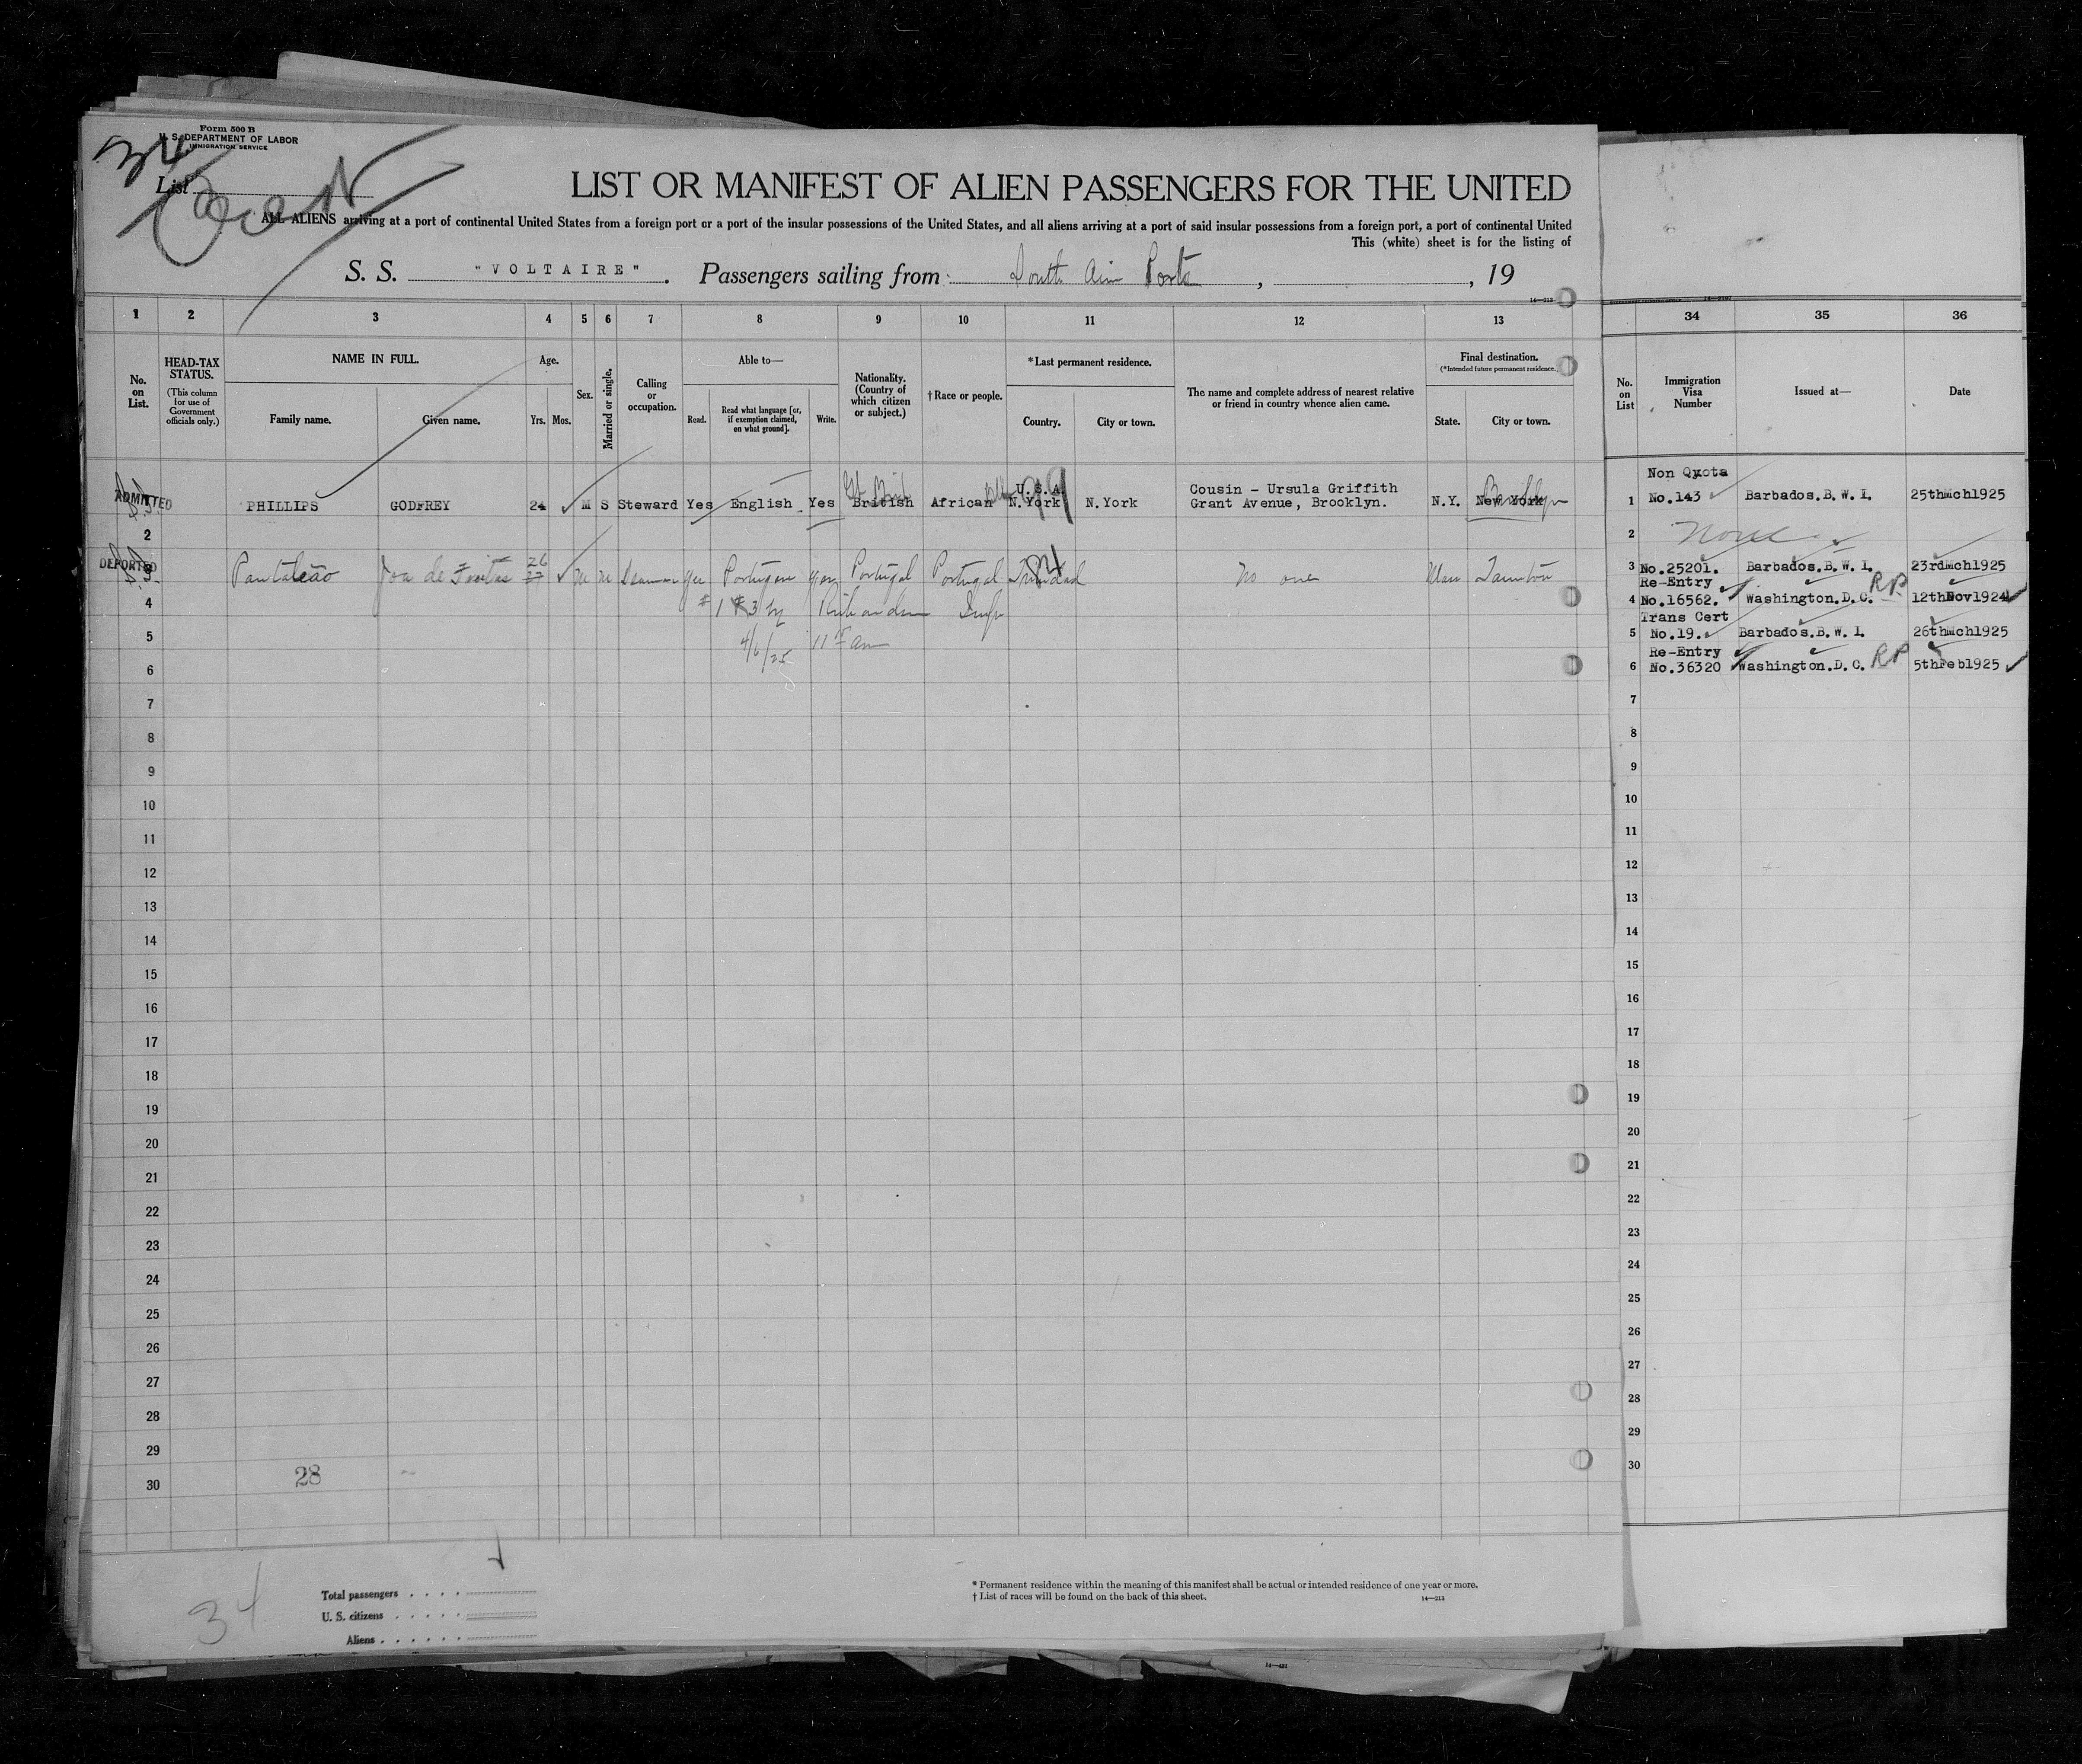 Form 500 B
U. S. DEPARTMENT OF LABOR
IMMIGRATION SERVICE
34
List
LIST OR MANIFEST OF ALIEN PASSENGERS FOR THE UNITED
ALL ALIENS arriving at a port of continental United States from a foreign port or a port of the insular possessions of the United States, and all aliens arriving at a port of said insular possessions from a foreign port, a port of continental United
This (white) sheet is for the listing of
S. S. "VOLTAIRE". Passengers sailing from South Am Ports, , 19
14—213
1 2 3 4 5 6 7 8 9 10 11 12 13
No. on List.
HEAD-TAX STATUS.
(This column for use of Government officials only.)
NAME IN FULL.
Family name. Given name.
Age.
Yrs. Mos.
Sex.
Married or single.
Calling or occupation.
Able to—
Read. Read what language [or, if exemption claimed, on what ground]. Write.
Nationality. (Country of which citizen or subject.)
† Race or people.
*Last permanent residence.
Country. City or town.
The name and complete address of nearest relative or friend in country whence alien came.
Final destination.
(*Intended future permanent residence.)
State. City or town.
34 35 36
No. on List
Immigration Visa Number
Issued at—
Date
ADMITTED PHILLIPS GODFREY 24 M S Steward Yes English Yes British African U.S.A. N.York N.York Cousin - Ursula Griffith Grant Avenue, Brooklyn. N.Y. New York Brooklyn
2
DEPORTED 3 Pantaleão Joa de Freitas 26 27 M M Seaman Yes Portugese Yes Portugal Portugal Trinidad No one Mass Taunton
4 #1 #3 by Insp
5 4/6/25 11 am
6
7
8
9
10
11
12
13
14
15
16
17
18
19
20
21
22
23
24
25
26
27
28
29
30
28
Non Quota
1 No.143 Barbados.B.W.I. 25thMch1925
2 None
3 No.25201. Barbados.B.W.I. 23rdMch1925
Re-Entry
4 No.16562. Washington.D.C. RP 12thNov1924
Trans Cert
5 No.19. Barbados.B.W.I. 26thMch1925
Re-Entry
6 No.36320 Washington.D.C. RP 5thFeb1925
7
8
9
10
11
12
13
14
15
16
17
18
19
20
21
22
23
24
25
26
27
28
29
30
34
Total passengers
U. S. citizens
Aliens
* Permanent residence within the meaning of this manifest shall be actual or intended residence of one year or more.
† List of races will be found on the back of this sheet.
14—213